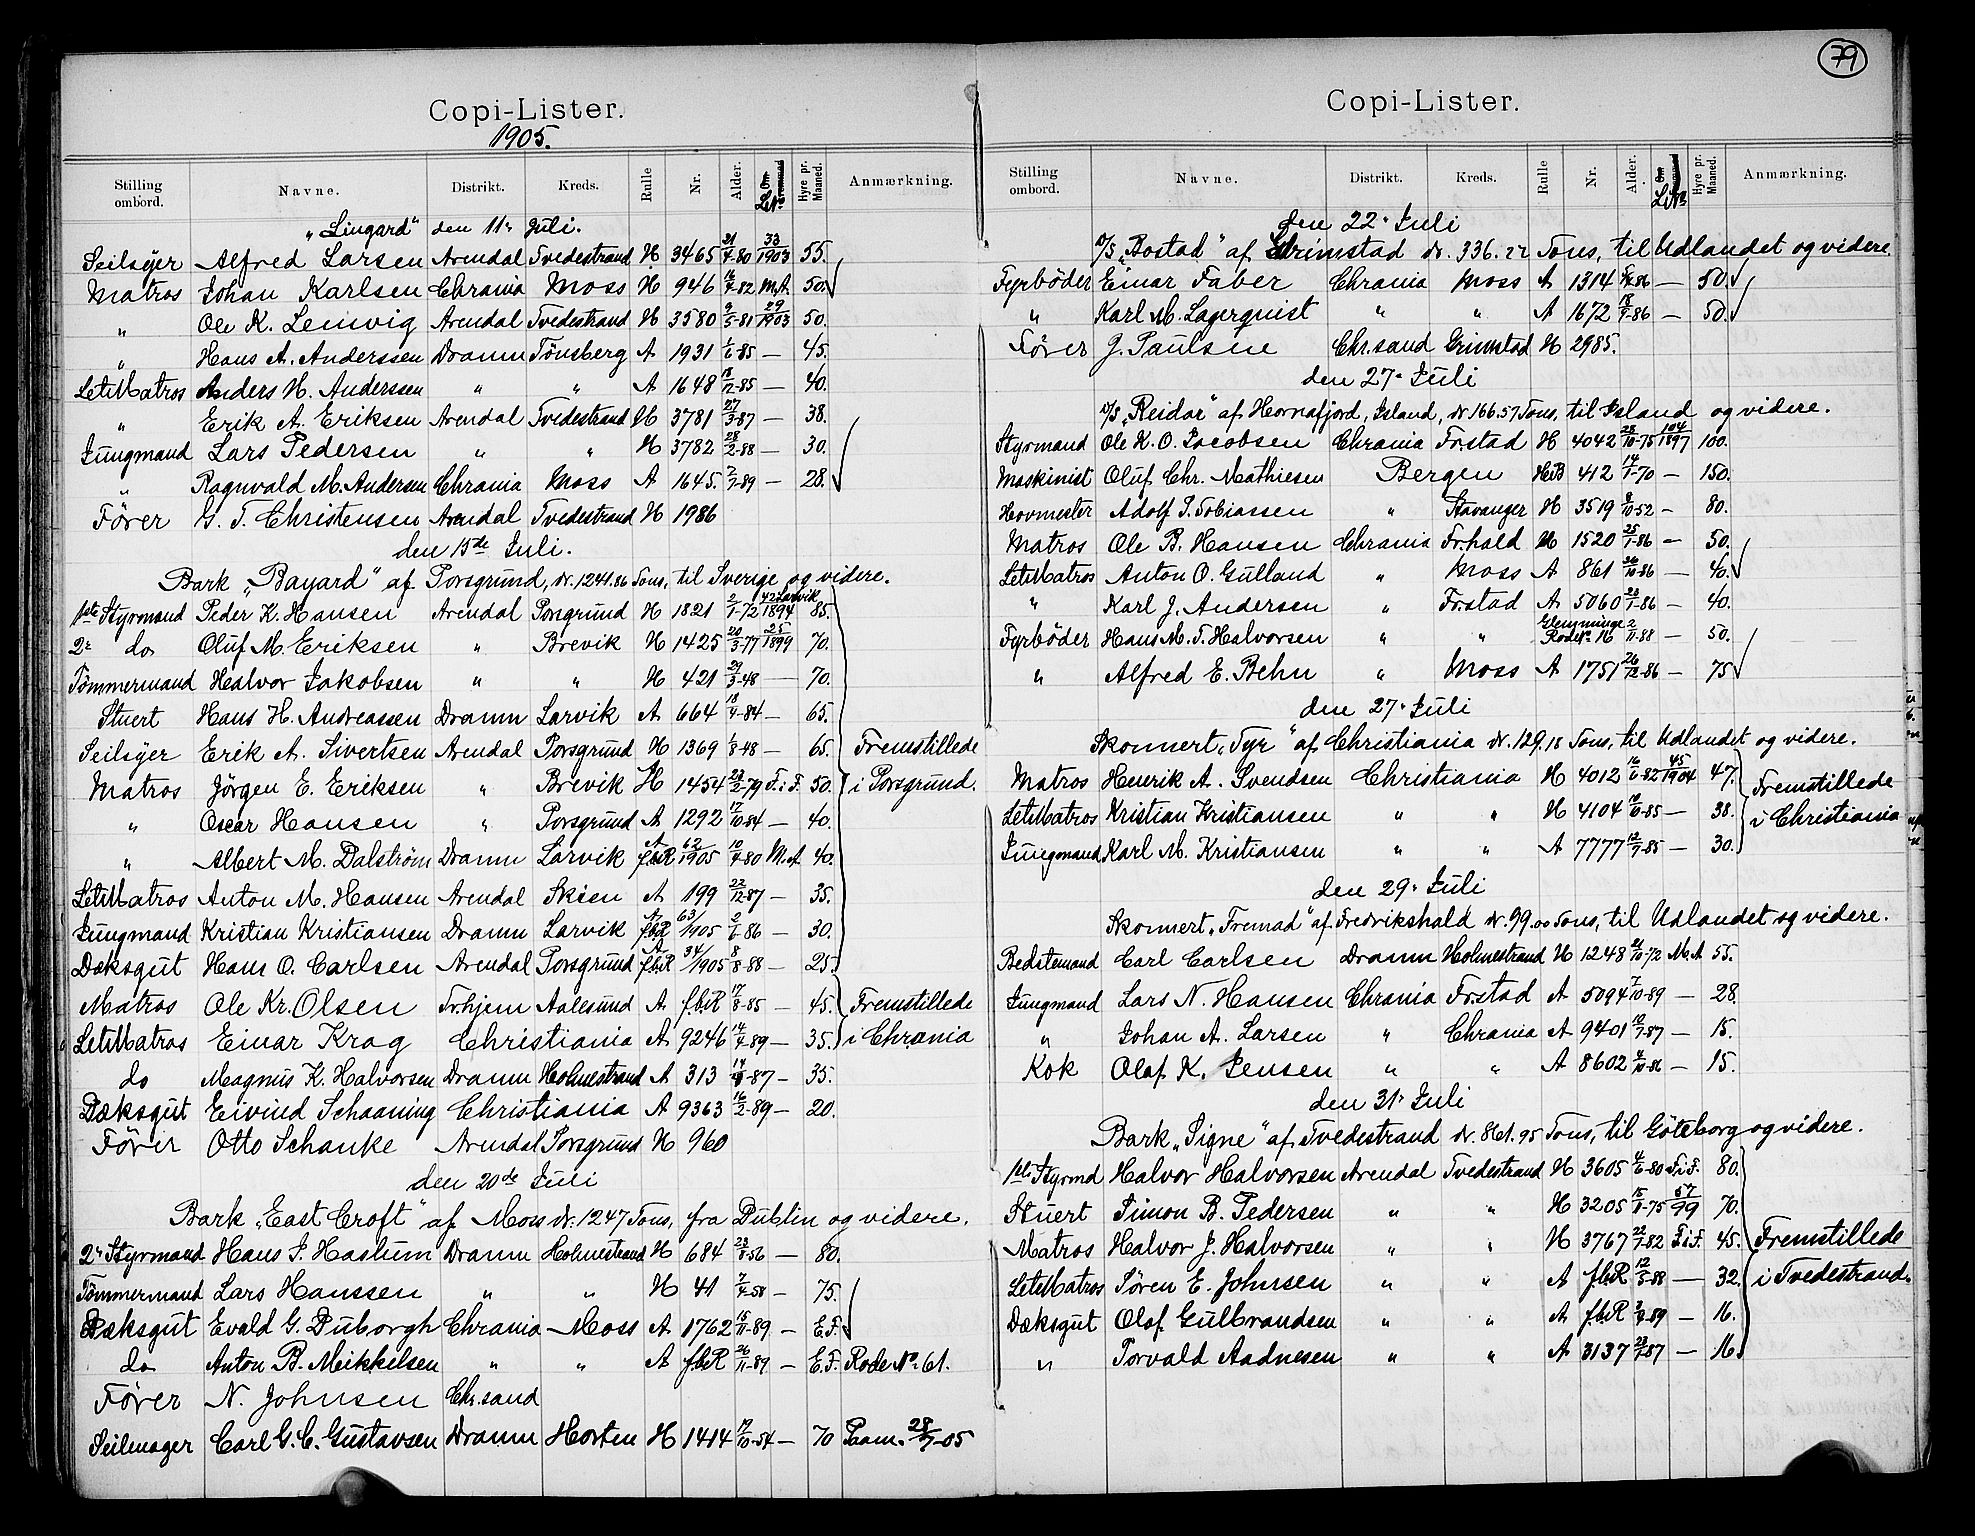 79
Copi-Lister.
1905.
Stilling ombord. Navne. Distrikt. Kreds. Rulle Nr. Alder. Hyre pr. Maaned. Anmærkning.
„Lingard“ den 11te Juli.
Seilsyer Alfred Larsen Arendal Tvedestrand H 3465 21/4-80 33/1903 55.
Matros Johan Karlsen Chrania Moss H 946 16/7-82 M.A. 50.
„ Ole K. Lemvig Arendal Tvedestrand H 3580 9/5-81 29/1903 50.
„ Hans A. Anderssen Dramn Tönsberg A 1931 1/6-85 — 45.
LetMatros Anders H. Anderssen „ „ A 1648 18/12-85 — 40.
„ Erik A. Eriksen Arendal Tvedestrand H 3781 27/3-87 — 38.
Jungmand Lars Pedersen „ „ H 3782 28/2-88 — 30.
„ Ragnvald M. Andersen Chrania Moss A 1645. 2/7-89 — 28.
Förer G. T. Christensen Arendal Tvedestrand H 1986
den 15de Juli.
Bark „Bayard“ af Porsgrund, dr. 1241.86 Tons, til Sverige og videre.
1ste Styrmand Peder K. Hansen Arendal Porsgrund H 1821 2/1-72 42 Larvik/1894 85.
2n do Oluf M. Eriksen „ Brevik H 1425 20/3-77 25/1899 70.
Tömmermand Halvor Jakobsen „ „ H 421 29/3-48 — 70.
Stuert Hans H. Andreassen Dramn Larvik A 664 18/4-84 — 65.
Seilsyer Erik A. Sivertsen Arendal Porsgrund H 1369 1/8-48 — 65. Fremstillede
Matros Jörgen E. Eriksen „ Brevik H 1454 23/2-79 F.i.F. 50. i Porsgrund.
„ Oscar Hansen „ Porsgrund A 1292 17/10-84 — 40.
„ Albert M. Dalström Dramn Larvik A fbR 62/1905 10/4-80 M.A. 40.
LetMatros Anton M. Hansen Arendal Skien A 199 22/12-87 — 35.
Jungmand Kristian Kristiansen Dramn Larvik A fbR 63/1905 2/6-86 — 30.
Dæksgut Hans O. Carlsen Arendal Porsgrund A fbR 34/1905 8/8-88 — 25.
Matros Ole Kr. Olsen Tr.hjem Aalesund A fbR 17/8-85 — 45. Fremstillede
LetMatros Einar Krag Christiania A 9246 14/4-89 — 35. i Chrania
do Magnus K. Halvorsen Dramn Holmestrand A 313 14/8-87 — 35.
Dæksgut Eivind Schaaning Christiania A 9363 16/2-89 — 20.
Förer Otto Schanke Arendal Porsgrund H 960
den 20de Juli
Bark „East Croft“ af Moss dr. 1247 Tons, fra Dublin og videre.
2n Styrmand Hans J. Haslum Dramn Holmestrand H 684 23/8-56 — 80.
Tömmermand Lars Hanssen „ „ H 41 7/4-58 — 75.
Dæksgut Evald G. Duborgh Chrania Moss A 1762 15/11-89 — E.F.
do Anton B. Mikkelsen „ „ A fbR 26/11-89 — E.F. Rode No 61.
Förer N. Johnsen Chr.sand
Seilmager Carl G. C. Gustavsen Dramn Horten H 1414 17/10-54 — 70 Paam. 28/7-05
Copi-Lister.
Stilling ombord. Navne. Distrikt. Kreds. Rulle Nr. Alder. Hyre pr. Maaned. Anmærkning.
den 22n Juli
D/S „Bostad“ af Grimstad dr. 336.22 Tons, til Udlandet og videre.
Fyrböder Einar Faber Chrania Moss A 1314 — 50.
„ Karl M. Lagerquist „ „ A 1672 18/9-86 — 50.
Förer J. Paulsen Chr.sand Grimstad H 2985.
den 27n Juli
D/S „Reidar“ af Hornafjord, Island, dr. 166.57 Tons, til Island og videre.
Styrmand Ole K. O. Jacobsen Chrania Fr.stad H 4042 28/10-75 104/1897 100.
Maskinist Oluf Chr. Mathiesen Bergen HB 412 14/1-70 — 150.
Hovmester Adolf S. Tobiassen „ Stavanger H 3519 8/10-52 — 80.
Matros Ole B. Hansen Chrania Fr.hald H 1520 25/1-86 — 50.
LetMatros Anton O. Gulland „ Moss A 861 30/10-86 — 40.
„ Karl J. Andersen „ Fr.stad A 5060 23/1-86 — 40.
Fyrböder Hans M. T. Halvorsen „ „ Glemminge Rode No 16 2/11-88 — 50.
„ Alfred E. Behn „ Moss A 1751 26/12-86 — 75
den 27n Juli
Skonnert „Tyr“ af Christiania dr. 129.18 Tons, til Udlandet og videre.
Matros Henrik A. Svendsen Christiania H 4012 16/6-82 45/1904 47. Fremstillede
LetMatros Kristian Kristiansen „ „ H 4104 10/10-85 — 38. i Christiania
Jungmand Karl M. Kristiansen „ „ A 7777 12/9-85 — 30.
den 29n Juli
Skonnert „Fremad“ af Fredrikshald dr. 99.00 Tons, til Udlandet og videre.
Bedstemand Carl Carlsen Dramn Holmestrand H 1248 M.A 55.
Jungmand Lars N. Hansen Chrania Fr.stad A 5094 7/10-89 — 28.
„ Johan A. Larsen „ Chrania A 9401 12/7-87 — 15.
Kok Olaf K. Jensen „ „ A 8602 — 15.
den 31n Juli
Bark „Signe“ af Tvedestrand dr. 861.95 Tons, til Göteborg og videre.
1ste Styrmd Halvor Halvorsen Arendal Tvedestrand H 3605 4/6-80 F.i.F. 80.
Stuert Simon B. Pedersen „ „ H 3205 15/8-75 57/99 70.
Matros Halvor J. Halvorsen „ „ H 3767 22/7-82 F.i.F. 45. Fremstillede
LetMatros Sören E. Johnsen „ „ A fbR 12/5-88 — 32. i Tvedestrand.
Dæksgut Olaf Gulbrandsen „ „ A fbR — 16.
„ Torvald Aadnesen „ „ A 3137 — 16.